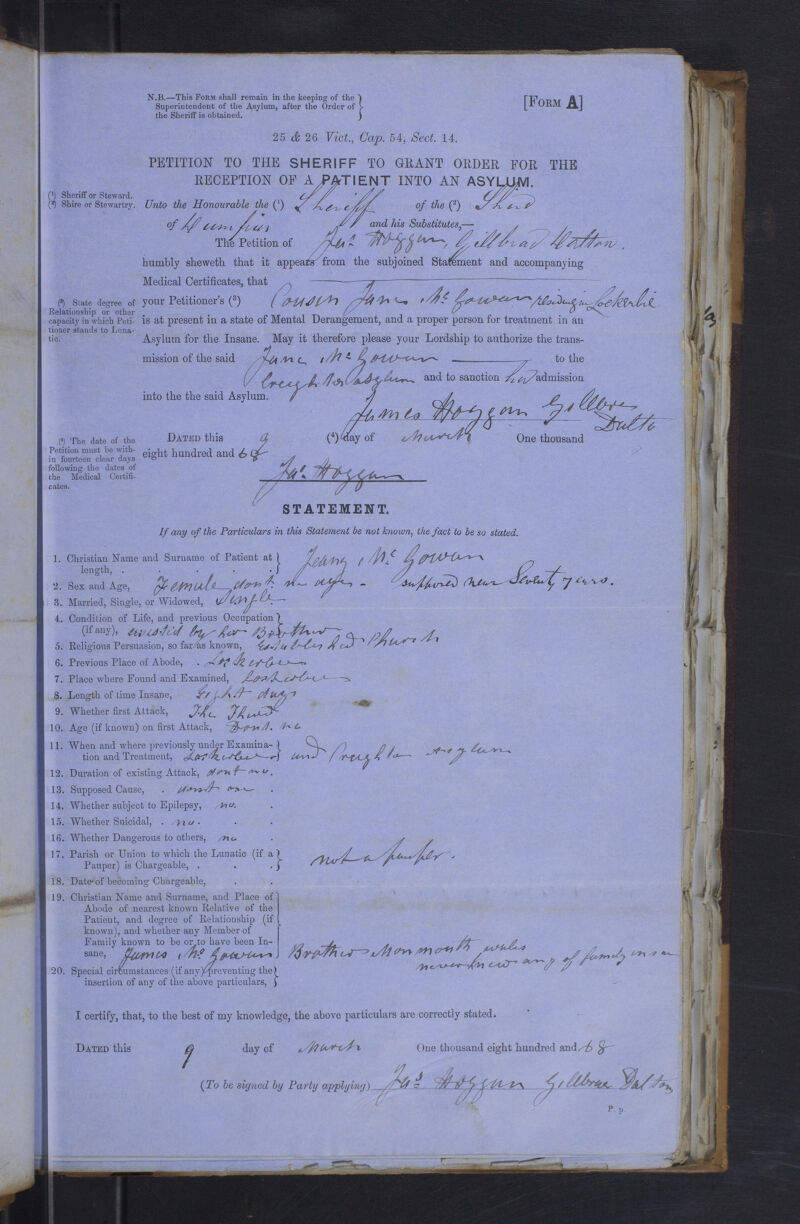 N.B.—This Form shall remain in the keeping of the
Superintendent of the Asylum, after the Order of
the Sheriff is obtained.
[Form A]
25 & 26 Vict., Cap. 54, Sect. 14.
PETITION TO THE SHERIFF TO GRANT ORDER FOR THE
RECEPTION OF A PATIENT INTO AN ASYLUM.
(1) Sheriff or Steward.
(2) Shire or Stewartry.
Unto the Honourable the (1) Sheriff of the (2)
of Dumfries and his Substitutes,—
The Petition of Jas Hoggan, Dalton.
humbly sheweth that it appears from the subjoined Statement and accompanying
Medical Certificates, that
(3) State degree of
Relationship or other
capacity in which Peti-
tioner stands to Luna-
tic.
your Petitioner's (3) Cousin Janes Mc Gowan residing in Lockerbie
is at present in a state of Mental Derangement, and a proper person for treatment in an
Asylum for the Insane. May it therefore please your Lordship to authorize the trans-
mission of the said Jane Mc Gowan to the
Creighton asylum and to sanction her admission
into the the said Asylum.
James Hoggan
Dalto
(4) The date of the
Petition must be with-
in fourteen clear days
following the dates of
the Medical Certifi-
cates.
Dated this 9 (4) day of March One thousand
eight hundred and 68
Jas. Hoggan
STATEMENT.
If any of the Particulars in this Statement be not known, the fact to be so stated.
1. Christian Name and Surname of Patient at
length, . Jeany Mc Gowan
2. Sex and Age, Female dont no age - supposed near Seventy years.
3. Married, Single, or Widowed, Single
4. Condition of Life, and previous Occupation
(if any), by her Brother
5. Religious Persuasion, so far as known, Established Church
6. Previous Place of Abode, . Lockerbie
7. Place where Found and Examined, Lockerbie
8. Length of time Insane, Eight days
9. Whether first Attack, The Third
10. Age (if known) on first Attack, Dont no
11. When and where previously under Examina-
tion and Treatment, Lockerbie and Creighton Asylum
12. Duration of existing Attack, dont no.
13. Supposed Cause, . dont
14. Whether subject to Epilepsy, no.
15. Whether Suicidal, . no.
16. Whether Dangerous to others, no
17. Parish or Union to which the Lunatic (if a
Pauper) is Chargeable, . not a pauper.
18. Date of becoming Chargeable,
19. Christian Name and Surname, and Place of
Abode of nearest known Relative of the
Patient, and degree of Relationship (if
known), and whether any Member of
Family known to be or to have been In-
sane, James Mc Gowan Brother Monmouth wales
never new any of family insane
20. Special circumstances (if any) preventing the
insertion of any of the above particulars,
I certify, that, to the best of my knowledge, the above particulars are correctly stated.
Dated this 9 day of March One thousand eight hundred and 68
(To be signed by Party applying) Jas Hoggan Dalton
P p.